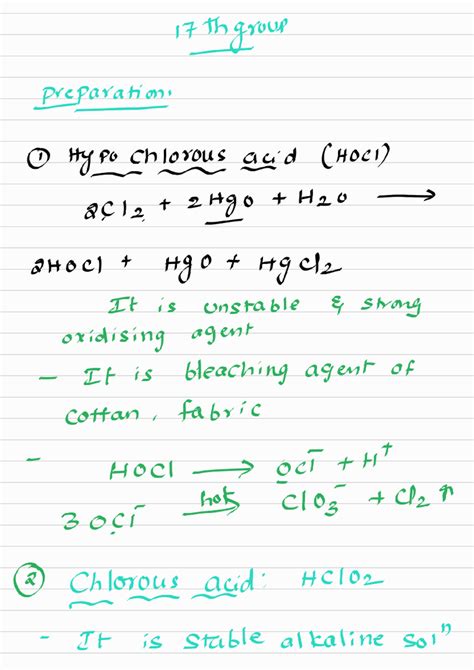 17th group
Preparation:
① Hypo chlorous acid (HOCl)
2Cl2 + 2HgO + H2O ⟶
2HOCl + HgO + HgCl2
It is unstable & strong
oxidising agent
- It is bleaching agent of
cottan, fabric
- HOCl ⟶ OCl⁻ + H⁺
3OCl⁻ hot⟶ ClO3⁻ + Cl2 ↑
② Chlorous acid: HClO2
- It is stable alkaline solⁿ